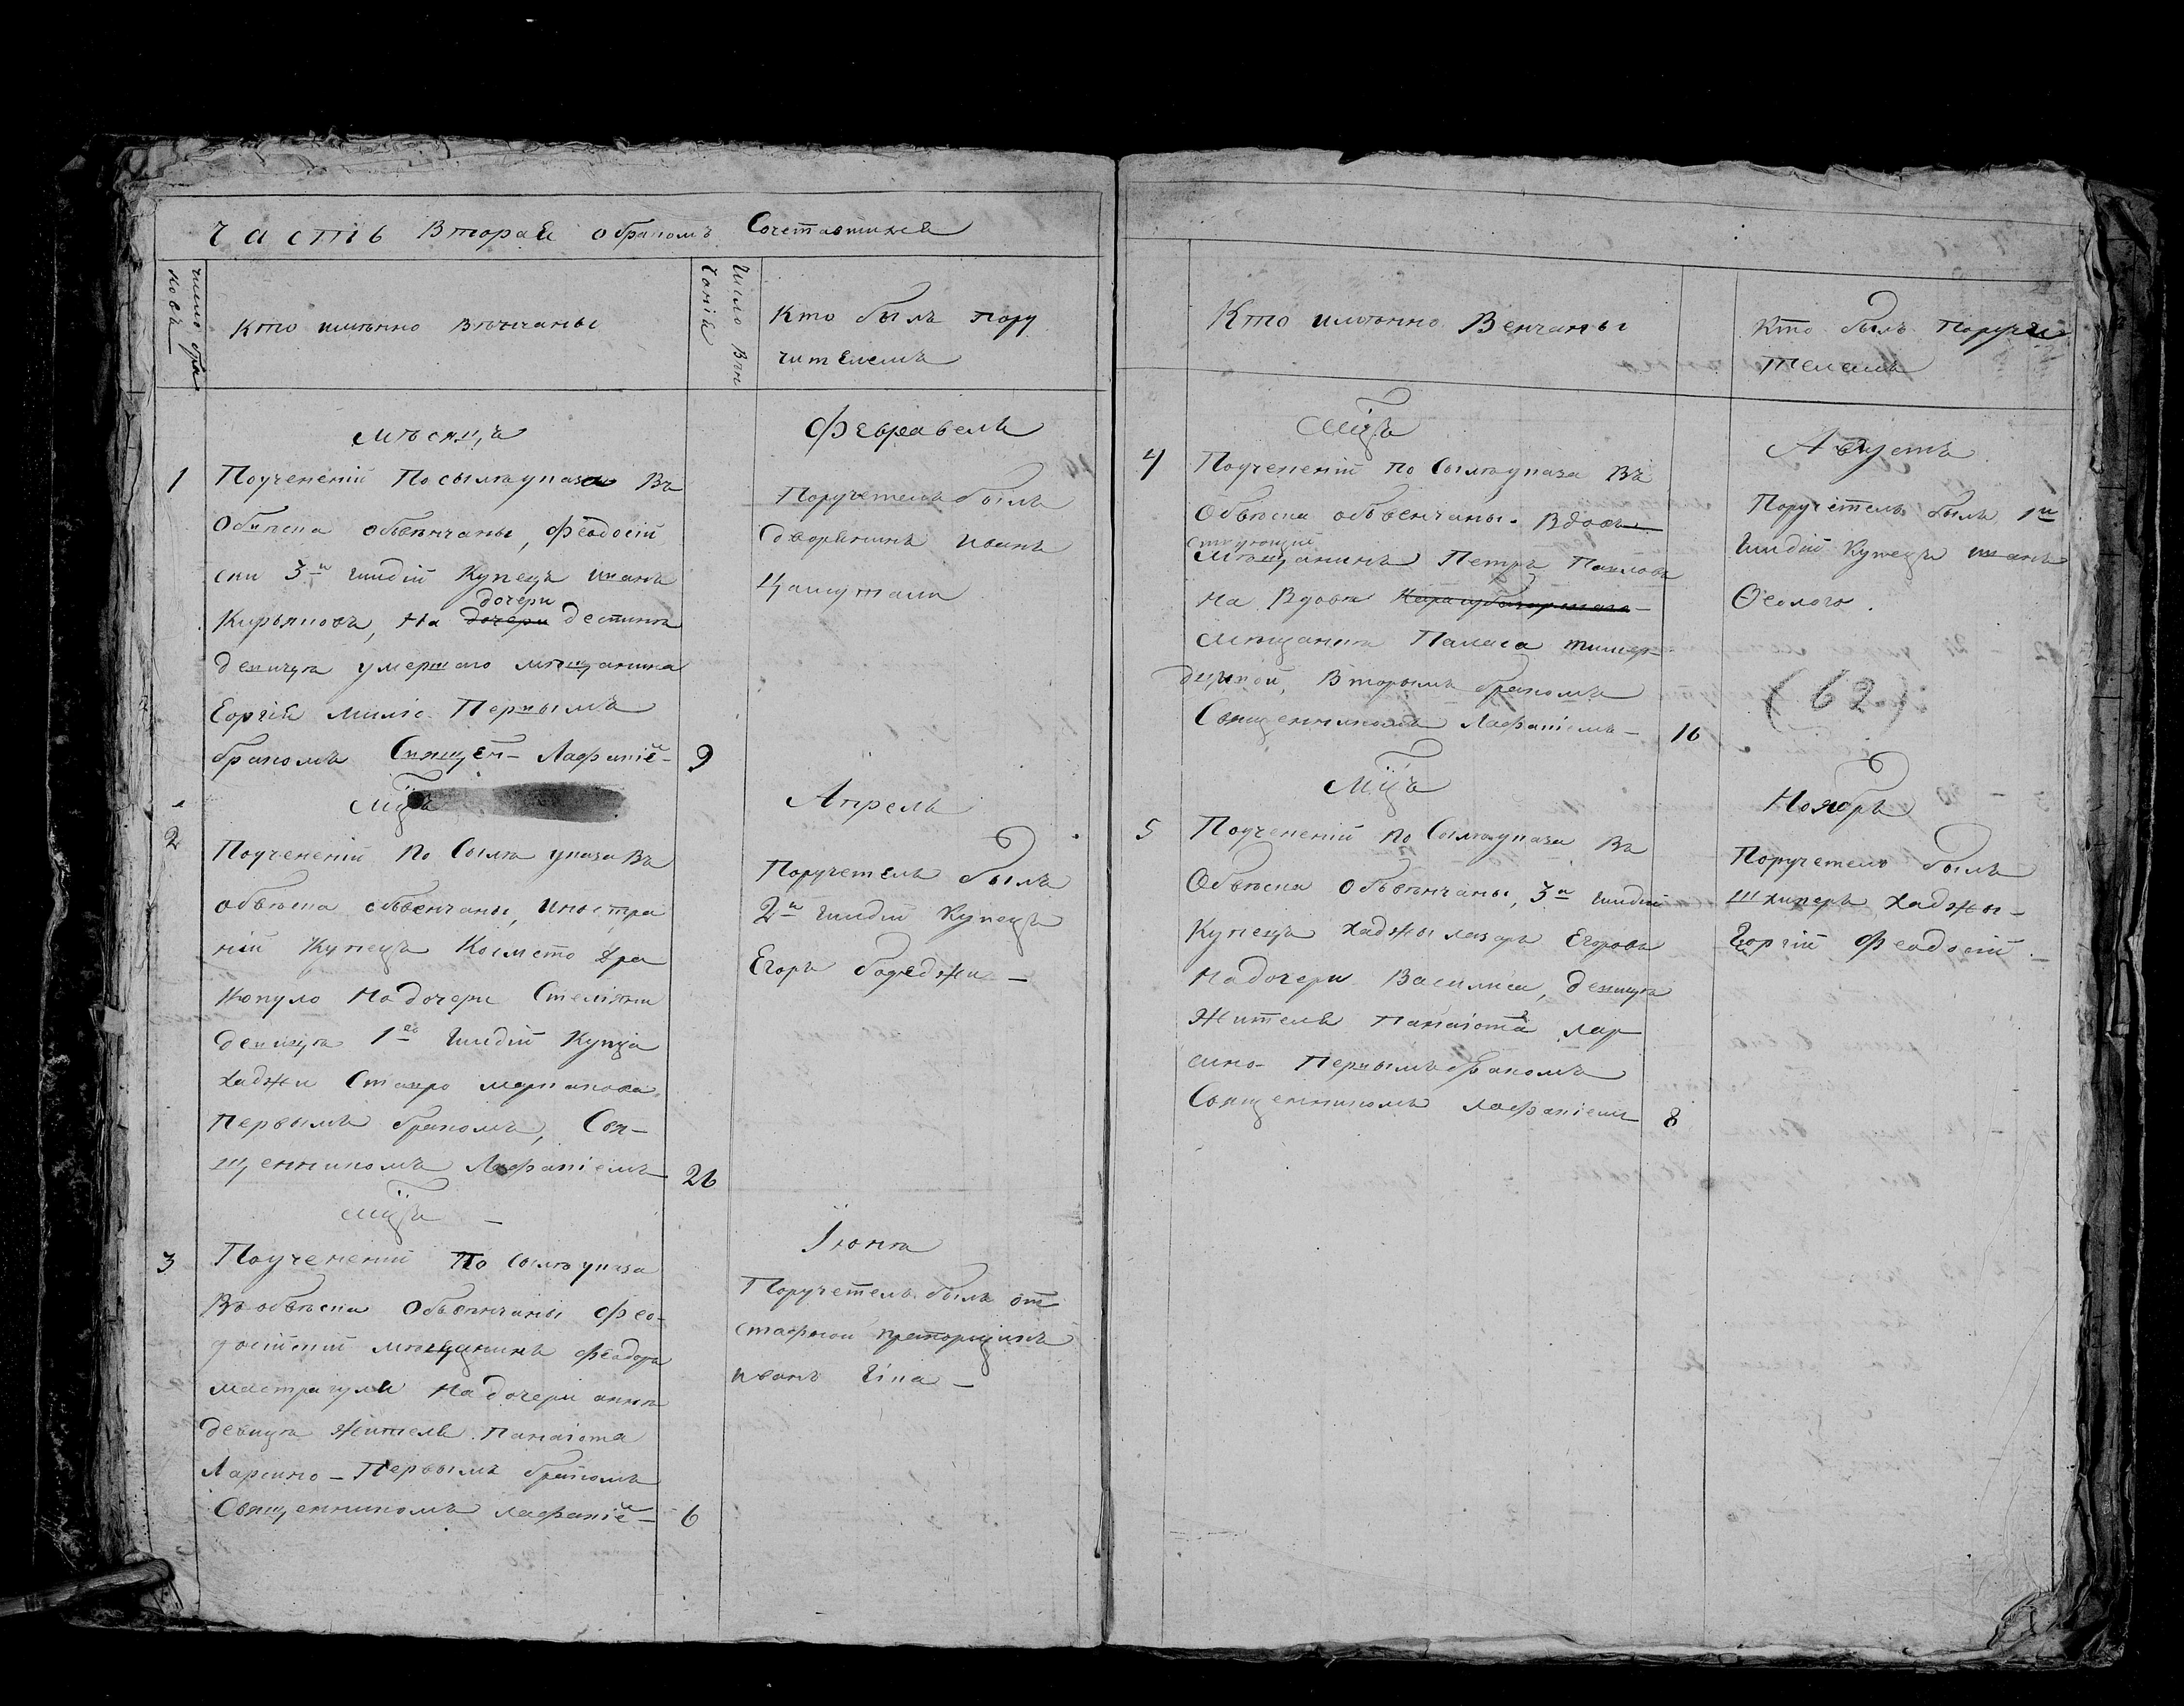 часть Вторая обракомъ Сочетавшихся
число бра
ковъ
Кто имянно вѣнчаны
Число Вѣн
чанія
Кто былъ пору
чителемъ
мѣсяцъ
Февраелъ
1
Поучененій По сылѣ указа Въ
обыска обвѣнчаны, Феодосій
ски 3й гилдіи Купецъ иванъ
Кирьяковъ, на дочери дочери деспинѣ
девицѣ умершаго мѣщанина
Еоргія милис. Первымъ
бракомъ Священ- Лафаніе- 9
Поручетель былъ
Дворянинъ иванъ
мцъ
Апрель
2
Поучененій по Сылѣ указа Въ
обвѣска обвенчаны, иностра
ній Купецъ Космето
копуло на дочери Стеліяни
девицѣ 1ой Гилдіи Купца
хаджи Ставро маркакова,
первымъ бракомъ, Свя-
щенникомъ Лафаніемъ 26
Поручетель былъ
2й гилдіи Купецъ
Егоръ
мцъ
Іюня
3
Поучененій По Сылѣ указа
Въ обвѣска обвѣнчаны Фео-
досійскій мѣщанинъ Феодоръ
на дочери анны
девицѣ жителя Панаіота
Ларсино - Первымъ бракомъ
Священникомъ лафаніе - 6
Поручетель былъ от
ставной прапорщикъ
иванъ
Кто имянно Венчаны
Кто былъ Поручи
телемъ
Мцъ
Августъ
4
Поучененій по Сылѣ указа Въ
Обвѣска обвенчаны. вдовъ
мѣщанинъ Петръ Павловъ
на Вдовѣ
мѣщанина
Вторымъ бракомъ
Священникомъ Лафаніемъ - 16
Поручетель былъ 1й
гилдіи Купецъ иванъ
Ѳеолого.
(62)
Мцъ
Ноябръ
5
Поучененій по Сылѣ указа Въ
Обвѣска обвѣнчаны, 3й гилдіи
Купецъ хаджы лазаръ Егоровъ
на дочери Василиса, девицѣ
жителя Панаіота лар
сино - Первымъ бракомъ
Священникомъ лафаніемъ 8
Поручетель былъ
шкиперъ хаджы-
Георгій Феодосій.